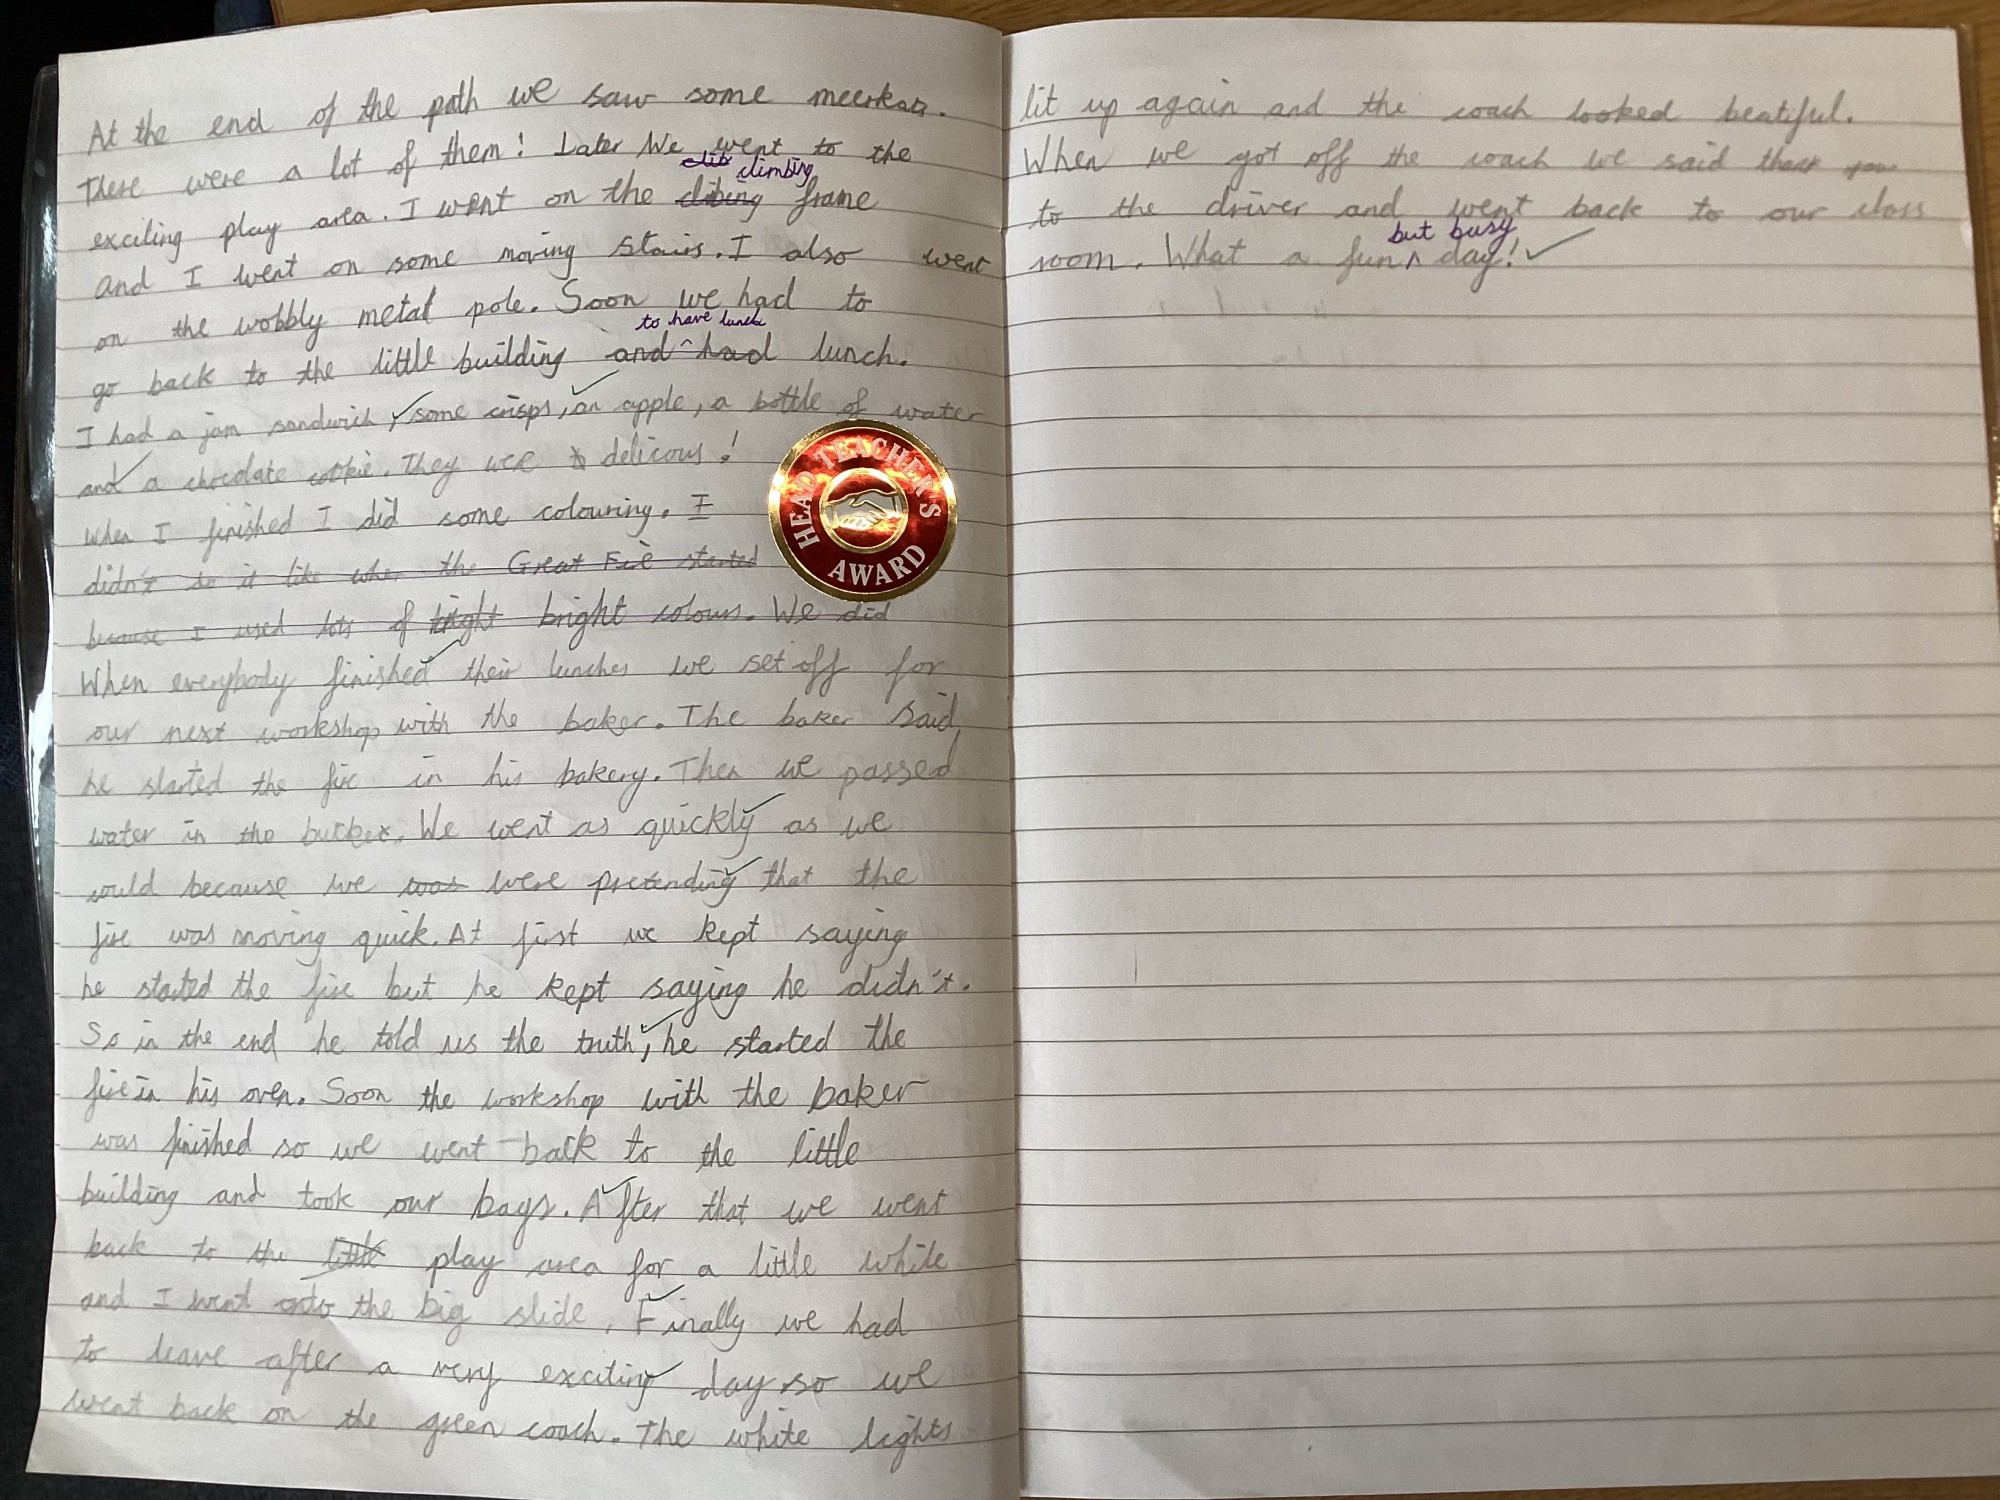 At the end of the path we saw some meerkats.
There were a lot of them! Later We went to the
clib climbing
exciting play area. I went on the clibing frame
and I went on some moving stairs. I also went
on the wobbly metal pole. Soon we had to
to have lunch
go back to the little building and ^ had lunch.
I had a jam sandwich, some crisps, an apple, a bottle of water
and a chocolate cookie. They were delicous!
When I finished I did some colouring. I
didn't do it like when the Great Fire started
because I used lots of bright colours. We did
When everybody finished their lunches we set off for
our next workshop with the baker. The baker said
he started the fire in his bakery. Then we passed
water in the bucket. We went as quickly as we
could because we was were pretending that the
fire was moving quick. At first we kept saying
he started the fire but he kept saying he didn't.
So in the end he told us the truth, he started the
fire in his oven. Soon the workshop with the baker
was finished so we went back to the little
building and took our bags. After that we went
back to the little play area for a little while
and I went onto the big slide. Finally we had
to leave after a very exciting day so we
went back on the green coach. The white lights
HEAD TEACHER'S
AWARD
lit up again and the coach looked beatiful.
When we got off the coach we said thank you
to the driver and went back to our class
but busy
room. What a fun ^ day!